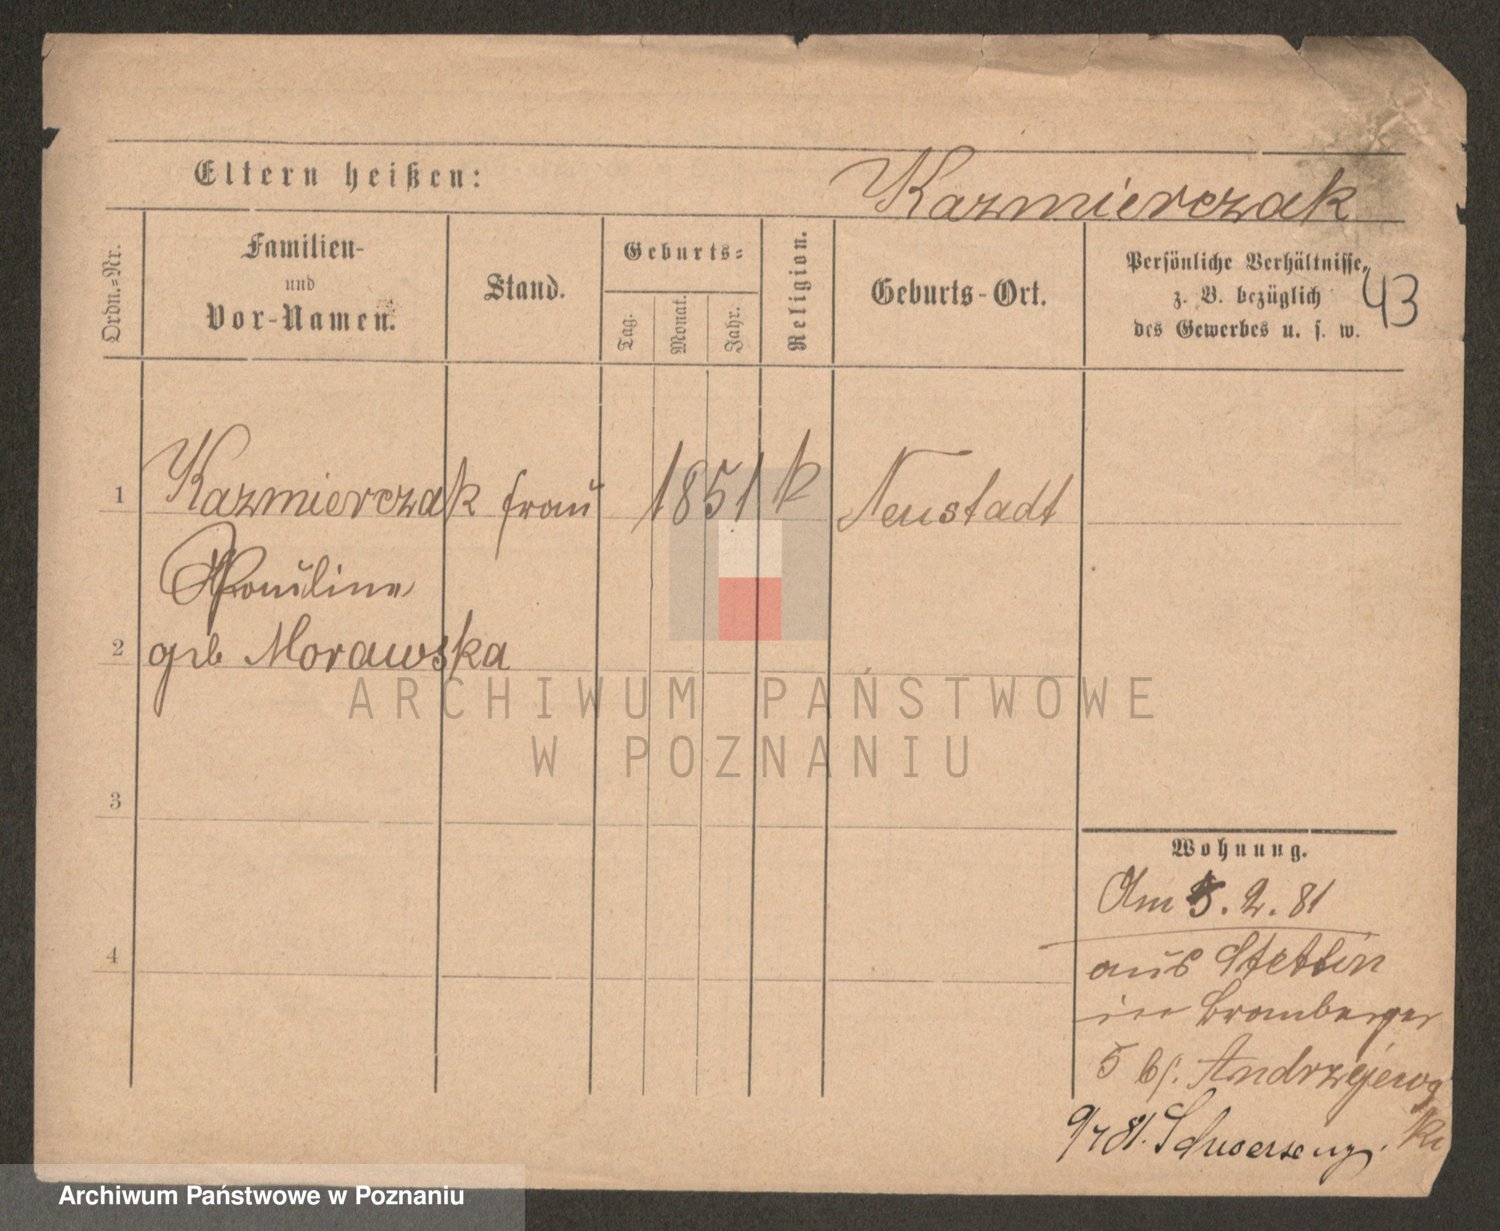 Eltern heißen:
Kazmierczak
Ordn.-Nr.
Familien-
und
Vor-Namen.
Stand.
Geburts-
Tag.
Monat.
Jahr.
Religion.
Geburts-Ort.
Persönliche Verhältnisse,
z. B. bezüglich
des Gewerbes u. s. w.
43
1 Kazmierczak frau 1851 k Neustadt
Pauline
2 geb Morawska
3
4
Wohnung.
Am 5. 2. 81
aus Stettin
in Bromberger
5 bs. Andrzejewg
9/7 81. Schwersenz.
ARCHIWUM PAŃSTWOWE
W POZNANIU
Archiwum Państwowe w Poznaniu